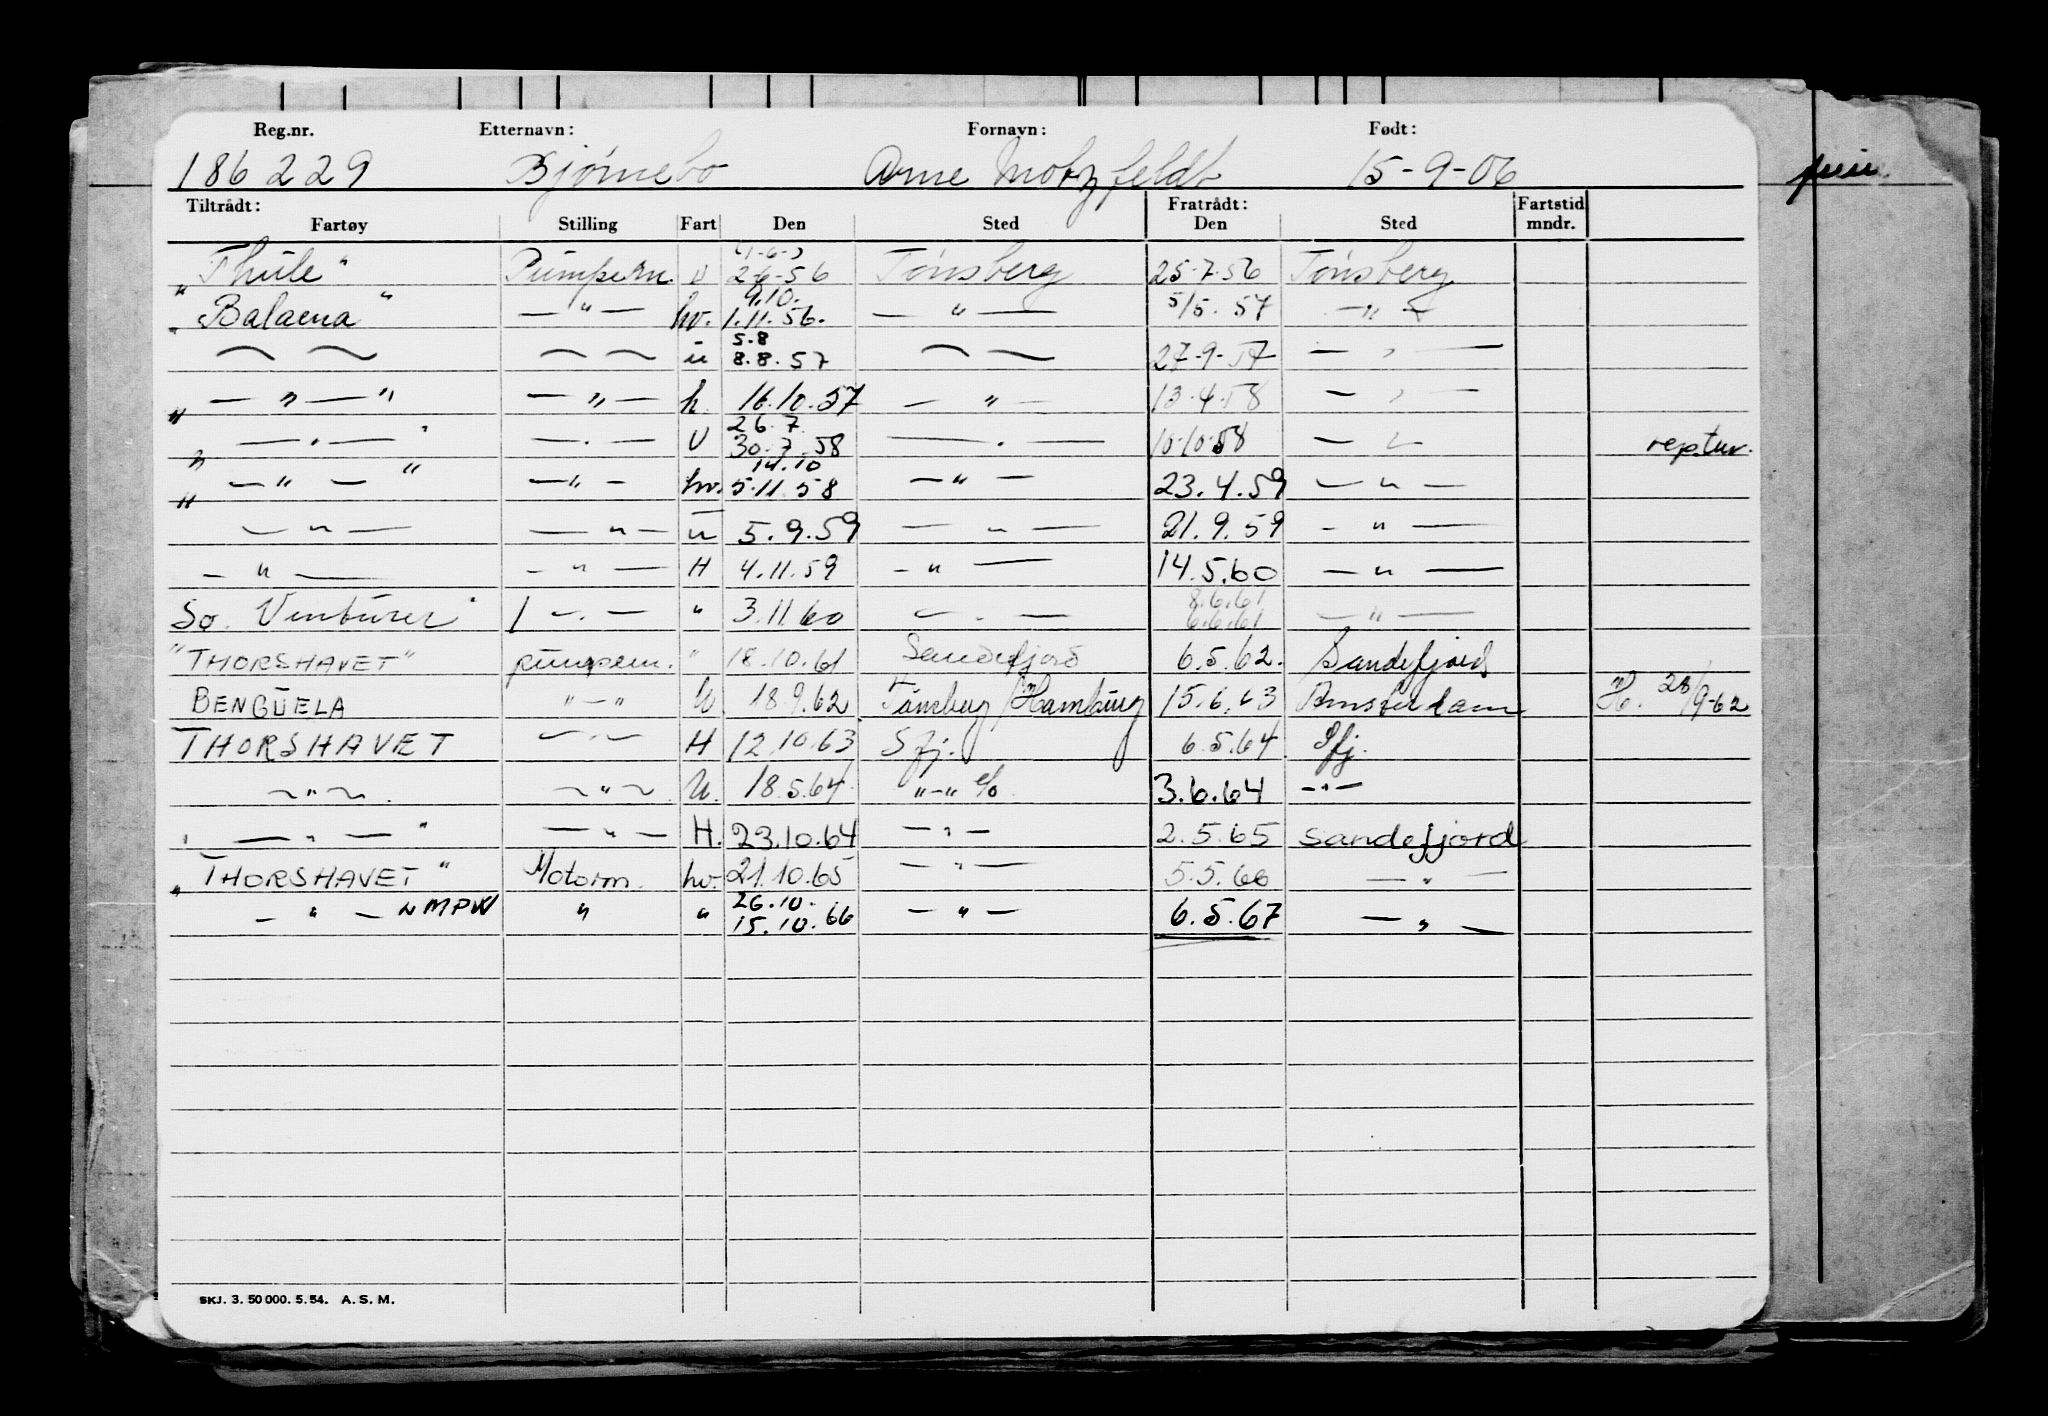 Reg.nr. Etternavn: Fornavn: Født:
186229 Bjørnebo Arne Motzfeldt 15-9-06
Tiltrådt: Fratrådt: Fartstid
Fartøy Stilling Fart Den Sted Den Sted mndr.
"Thule" Pumpem. U 2-6-56 Tønsberg 25-7-56 Tønsberg
9.10.
"Balaena" — " — hv. 1.11.56. — " — 5/5. 57 — " —
5.8
~ ~ ~ ~ u 8.8.57 ~ — 27-9-57 — " —
" — " — " — " — h. 16.10.57 — " — 13.4.58 — " —
26.7.
" — " — " — " — U 30.7.58 — " — 10-10-58 — " — rep.tur.
14.10
" — " — " — " — hv. 5.11.58 — " — 23.4.59 — " —
— " — — " — u 5.9.59 — " — 21.9.59 — " —
— " — — " — H 4.11.59 — " — 14.5.60 — " —
8.6.61
So. Venturer / — " — " 3.11.60 — " — 6.6.61 — " —
"THORSHAVET" pumpem. " 18.10.61 Sandefjord 6.5.62. Sandefjord
BENGUELA " — " U. 18.9.62 Tønsberg/Hamburg 15.6.63 Amsterdam H. 28/9-62
THORSHAVET — " — H 12.10.63 Sfj. 6.5.64 Sfj.
~ " ~ ~ " ~ U. 18.5.64 " — " c/o 3.6.64 — " —
" — " — " — " — H. 23.10.64 — " — 2.5.65 Sandefjord
"THORSHAVET" Motorm. hv. 21.10.65 — " — 5.5.66 — " —
26.10.
— " — LMPW " " 15.10.66 — " — 6.5.67 — " —
SKJ. 3. 50 000. 5. 54. A. S. M.